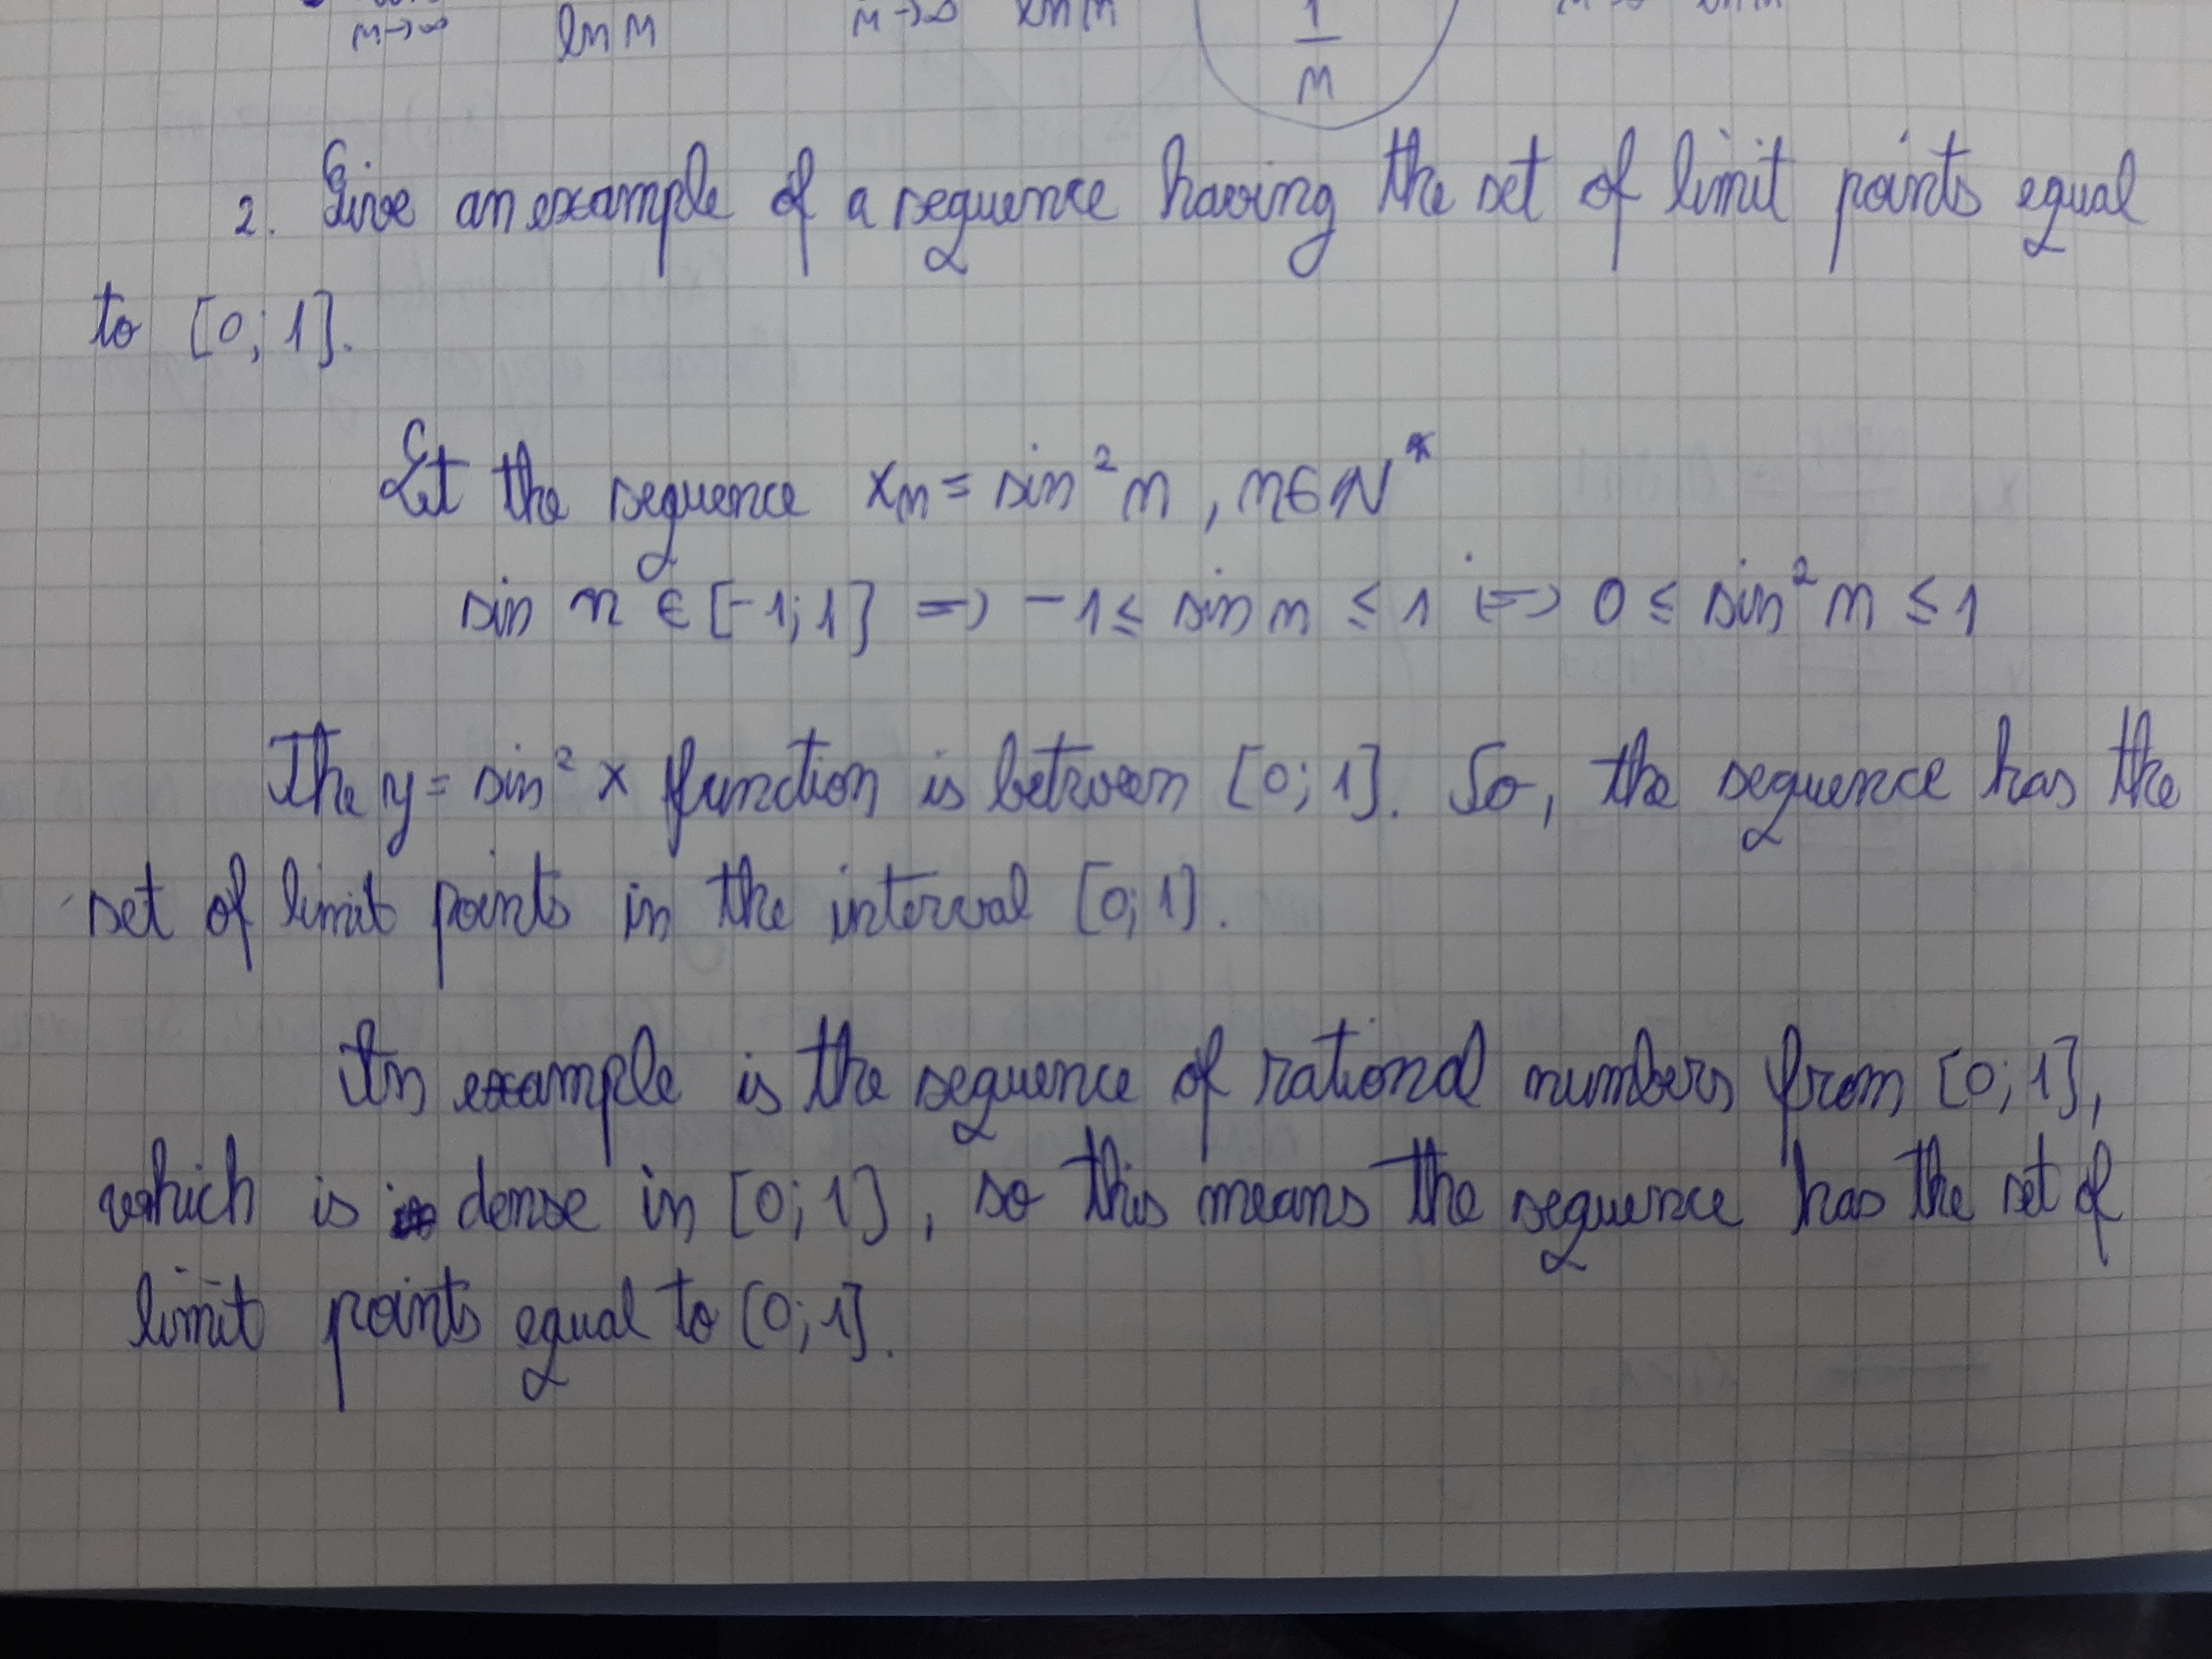 n→∞ ln n n→∞ 1/n
2. Give an example of a sequence having the set of limit points equal
to [0; 1].
Let the sequence xn = sin² n, n∈N*
sin n ∈ [-1; 1] => -1 ≤ sin n ≤ 1 (=> 0 ≤ sin² n ≤ 1
The y = sin² x function is between [0; 1]. So, the sequence has the
set of limit points in the interval [0; 1].
An example is the sequence of rational numbers from [0; 1],
which is dense in [0; 1], so this means the sequence has the set of
limit points equal to [0; 1].